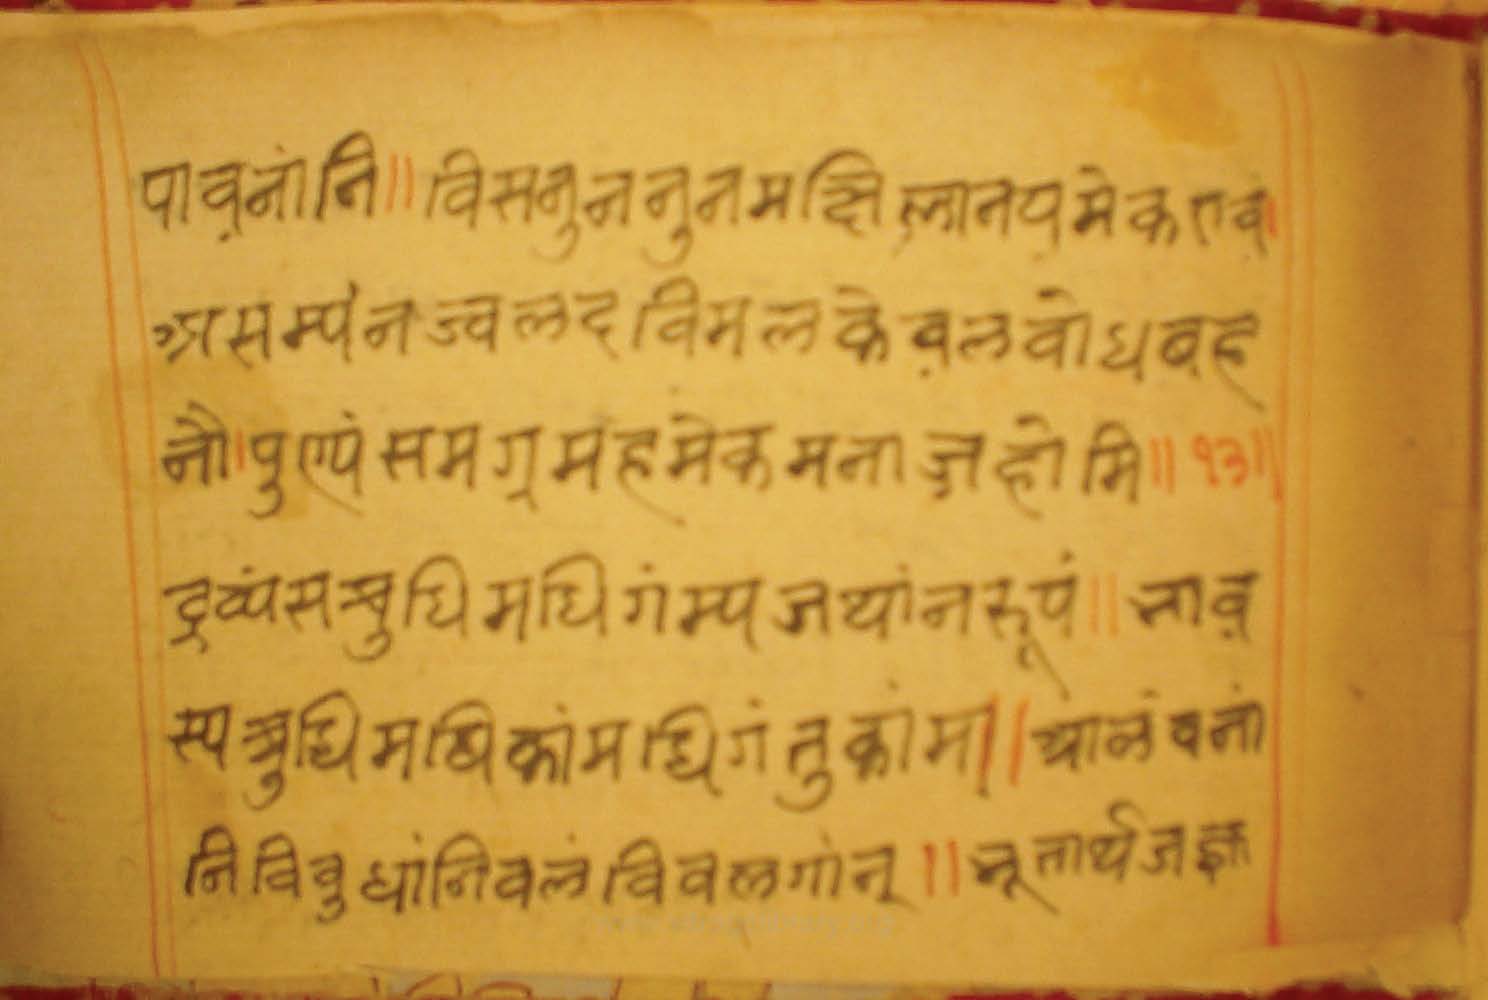 पाव़नांनि॥ विसनुननुनमखिलानय़मेकएव़।
अ्रसम्पंनज्वलदविमलकेव़लवोधवह
नौ।पुएपंसमग्रमहमेकमनाज़होमि॥१३॥
द्रव्यंसस्रुधिमधिगंम्पजथांनरूपं॥ भाव़
स्पस्रुधिमधिकांमधिगंतुकांम॥ आलंवनां
निविवुधांनिवलंविवलगांन्॥ भूतार्थजज्ञ